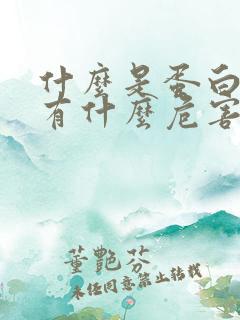 什麼是蛋白
有什麼危害
董艷芬
未經同意禁止轉載